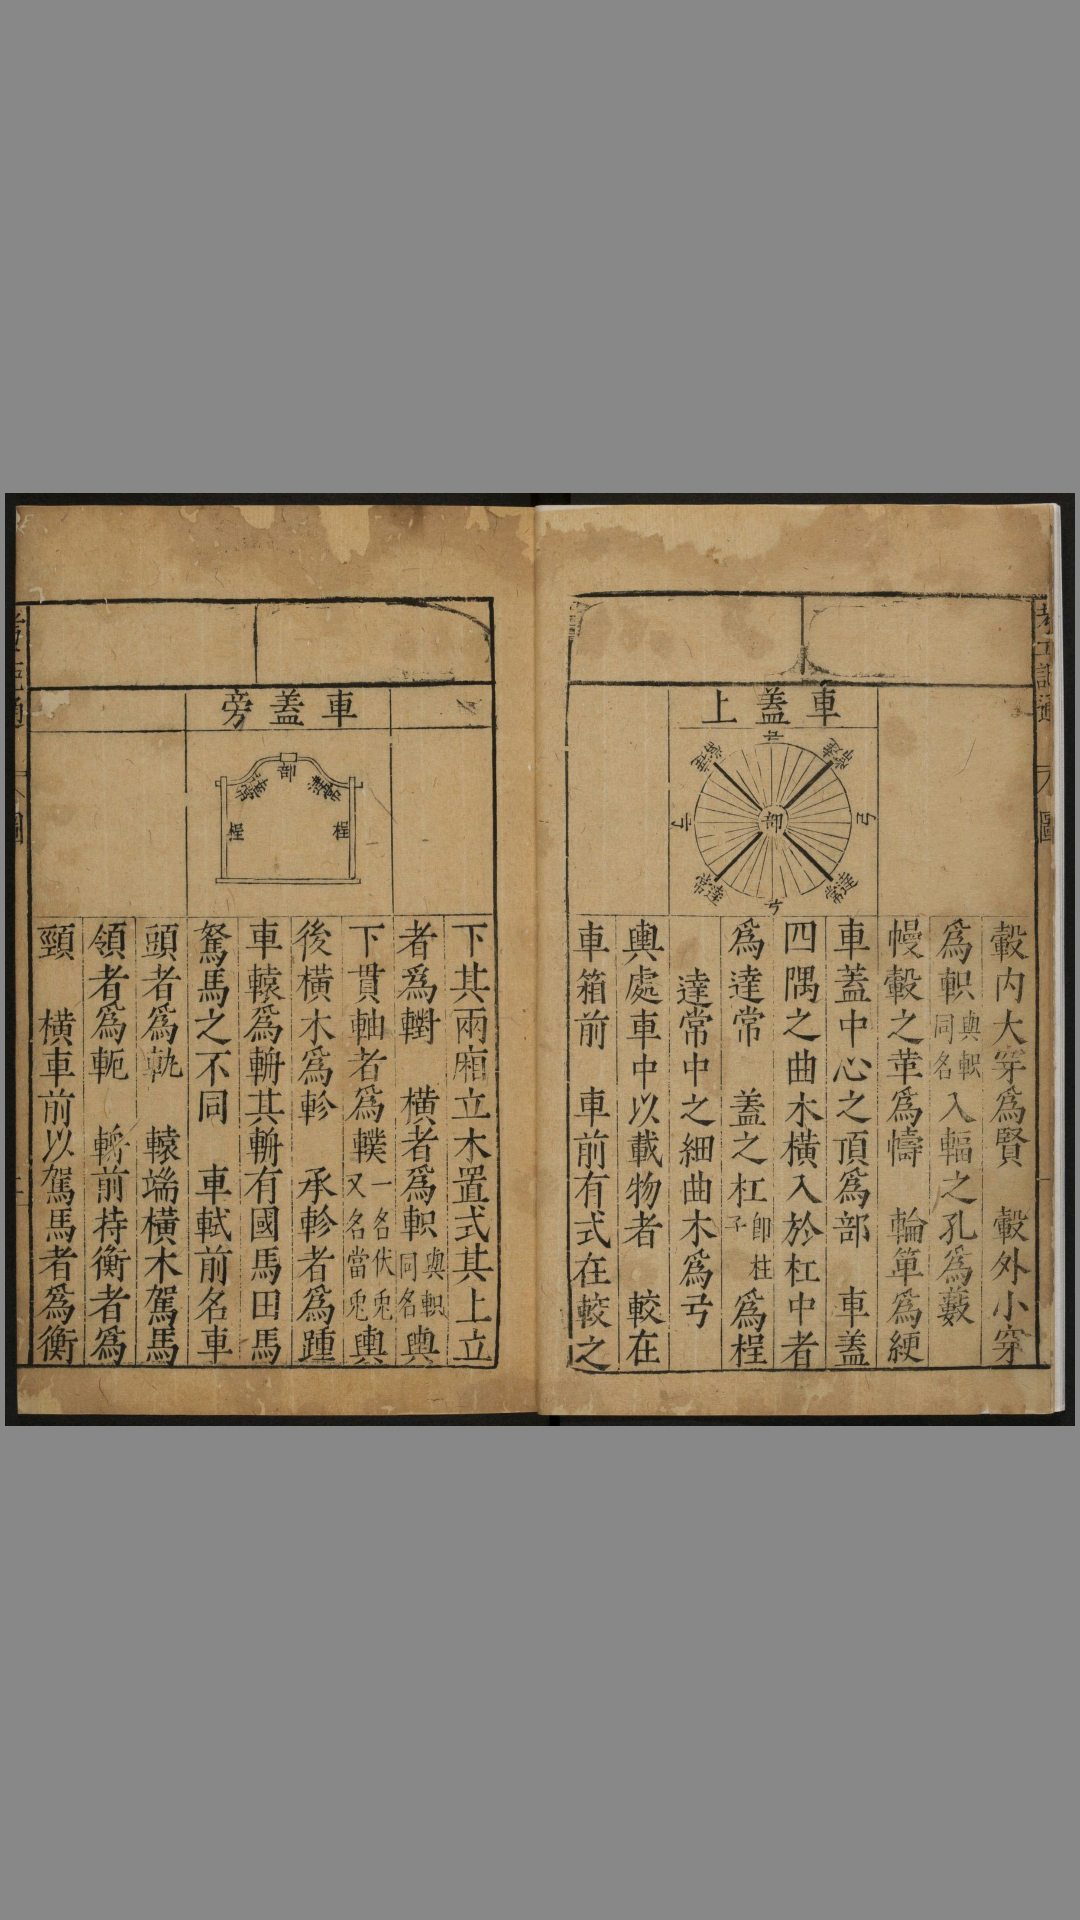 車蓋上
弓
達常
達常
部
弓
弓
達常
達常
弓
轂内大穿爲賢　轂外小穿
爲軹與軹同名入輻之孔爲藪
幔轂之革爲幬　輪箄爲綆
車蓋中心之頂爲部　車蓋
四隅之曲木橫入於杠中者
爲達常　蓋之杠即柱子爲桯
達常中之細曲木爲弓
輿處車中以載物者　較在
車箱前　車前有式在較之
車蓋旁
部
達常
達常
桯
桯
下其兩廂立木置式其上立
者爲轛　橫者爲軹與軹同名輿
下貫軸者爲轐一名伏兎又名當兎輿
後橫木爲軫　承軫者爲踵
車轅爲輈其輈有國馬田馬
駑馬之不同　車軾前名車
頭者爲軓　轅端橫木駕馬
領者爲軛　輈前持衡者爲
頸　橫車前以駕馬者爲衡